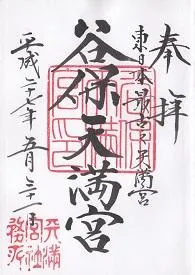 奉拝
東日本最古の天満宮
谷保天満宮
平成二十七年五月三十一日
天満宮社務所